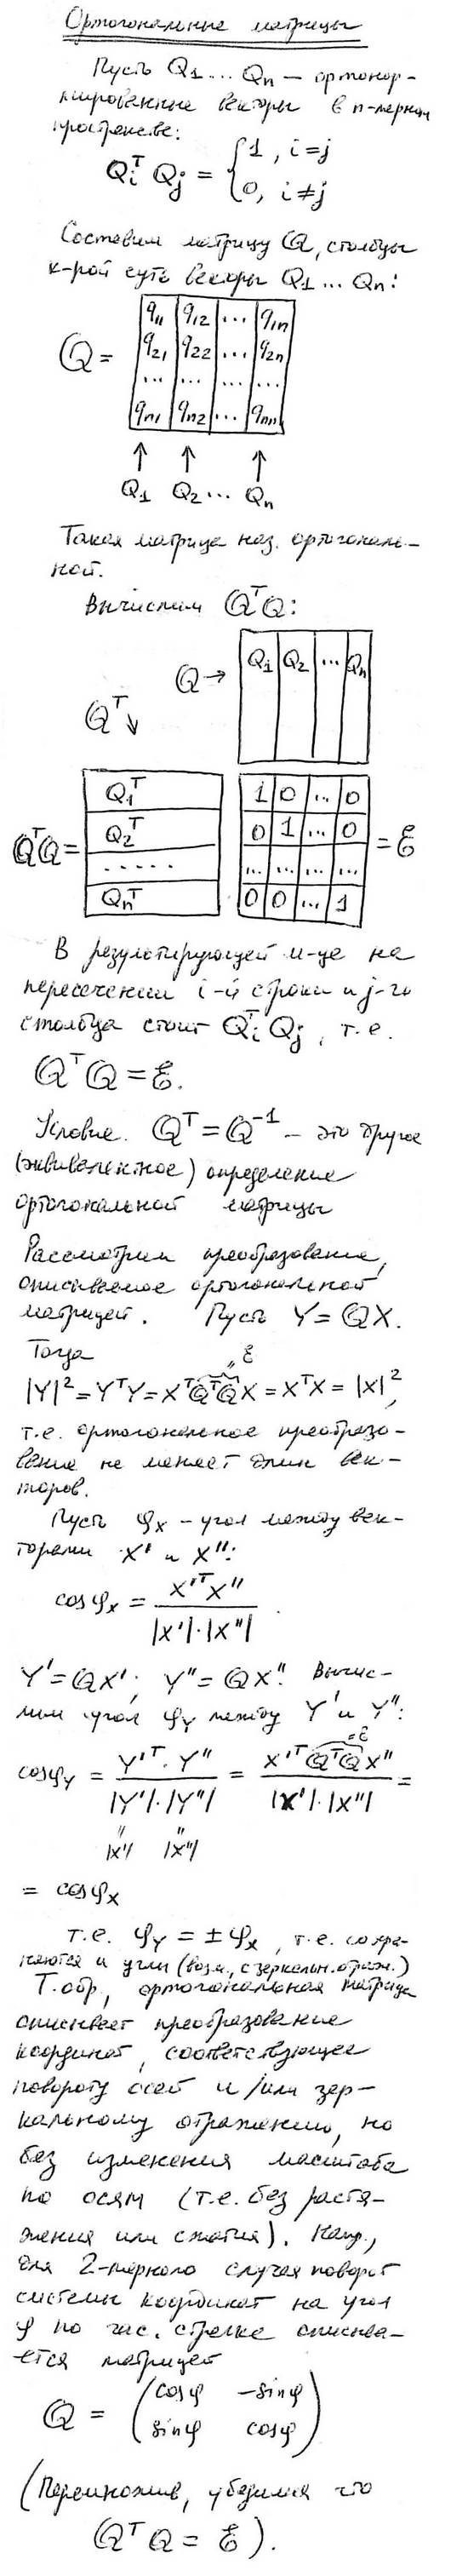 Ортогональные матрицы
Пусть Q1 ... Qn — ортонор-
мированные векторы в n-мерном
пространстве:
QiT Qj = { 1, i=j
0, i≠j
Составим матрицу Q, столбцы
к-рой суть векторы Q1 ... Qn:
Q = q11 q12 ... q1n
q21 q22 ... q2n
... ... ... ...
qn1 qn2 ... qnn
↑ ↑ ↑
Q1 Q2 ... Qn
Такая матрица наз. ортогональ-
ной.
Вычислим QTQ:
Q → Q1 Q2 ... Qn
QT↓
QTQ = Q1T 1 0 ... 0
Q2T 0 1 ... 0 = E
..... ... ... ... ...
QnT 0 0 ... 1
В результирующей м-це на
пересечении i-й строки и j-го
столбца стоит QTi Qj, т.е.
QTQ = E.
Условие. QT = Q-1 — это другое
(эквивалентное) определение
ортогональной матрицы
Рассмотрим преобразование,
описываемое ортогональной
матрицей. Пусть Y = QX.
Тогда = E
|Y|2 = YTY = XTQTQX = XTX = |X|2,
т.е. ортогональное преобразо-
вание не меняет длин век-
торов.
Пусть φX - угол между век-
торами X' и X'':
cosφX = X'TX''
|X'|·|X''|.
Y' = QX'; Y'' = QX''. Вычис-
лим угол φY между Y' и Y'':
= E
cosφY = Y'T·Y'' = X'TQTQX'' =
|Y'|·|Y''| |X'|·|X''|
" "
|X'| |X''|
= cosφX
т.е. φY = ±φX, т.е. сохра-
няются и углы (возм., с зеркальн. отраж.)
Т.обр., ортогональная матрица
описывает преобразование
координат, соответствующее
повороту осей и/или зер-
кальному отражению, но
без изменения масштаба
по осям (т.е. без растя-
жения или сжатия). Напр.,
для 2-мерного случая поворот
системы координат на угол
φ по час. стрелке описыва-
ется матрицей
Q = (cosφ -sinφ
sinφ cosφ)
(Перемножив, убедимся что
QTQ = E).